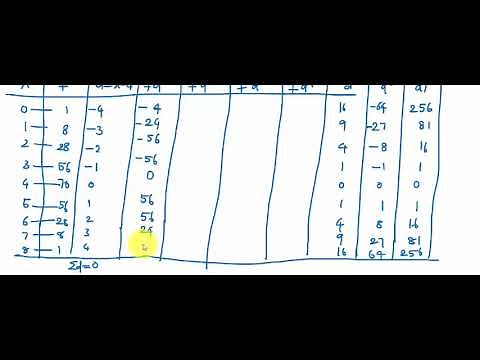 x f d=x-4 fd fd² fd³ fd⁴ d² d³ d⁴
0 — 1 -4 -4 16 -64 256
1 — 8 -3 -24 9 -27 81
2 — 28 -2 -56 4 -8 16
3 — 56 -1 -56 1 -1 1
4 — 70 0 0 0 0 0
5 — 56 1 56 1 1 1
6 — 28 2 56 4 8 16
7 — 8 3 24 9 27 81
8 — 1 4 4 16 64 256
Σd=0